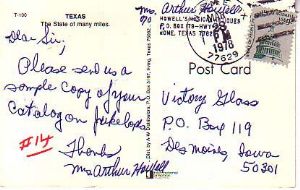 T-100
TEXAS
The State of many miles.
Mrs. Arthur Howell
HOWELL'S MUSICAL ANTIQUES
P.O. BOX 179-HWY
NOME, TEXAS 77629
1978
77629
Dear Sir,
Please send us a
sample copy of your
Catalog on jukeboxes.
#14
Thanks
Mrs Arthur Howell
Post Card
Victory Glass
P.O. Box 119
Des Moines, Iowa
50301